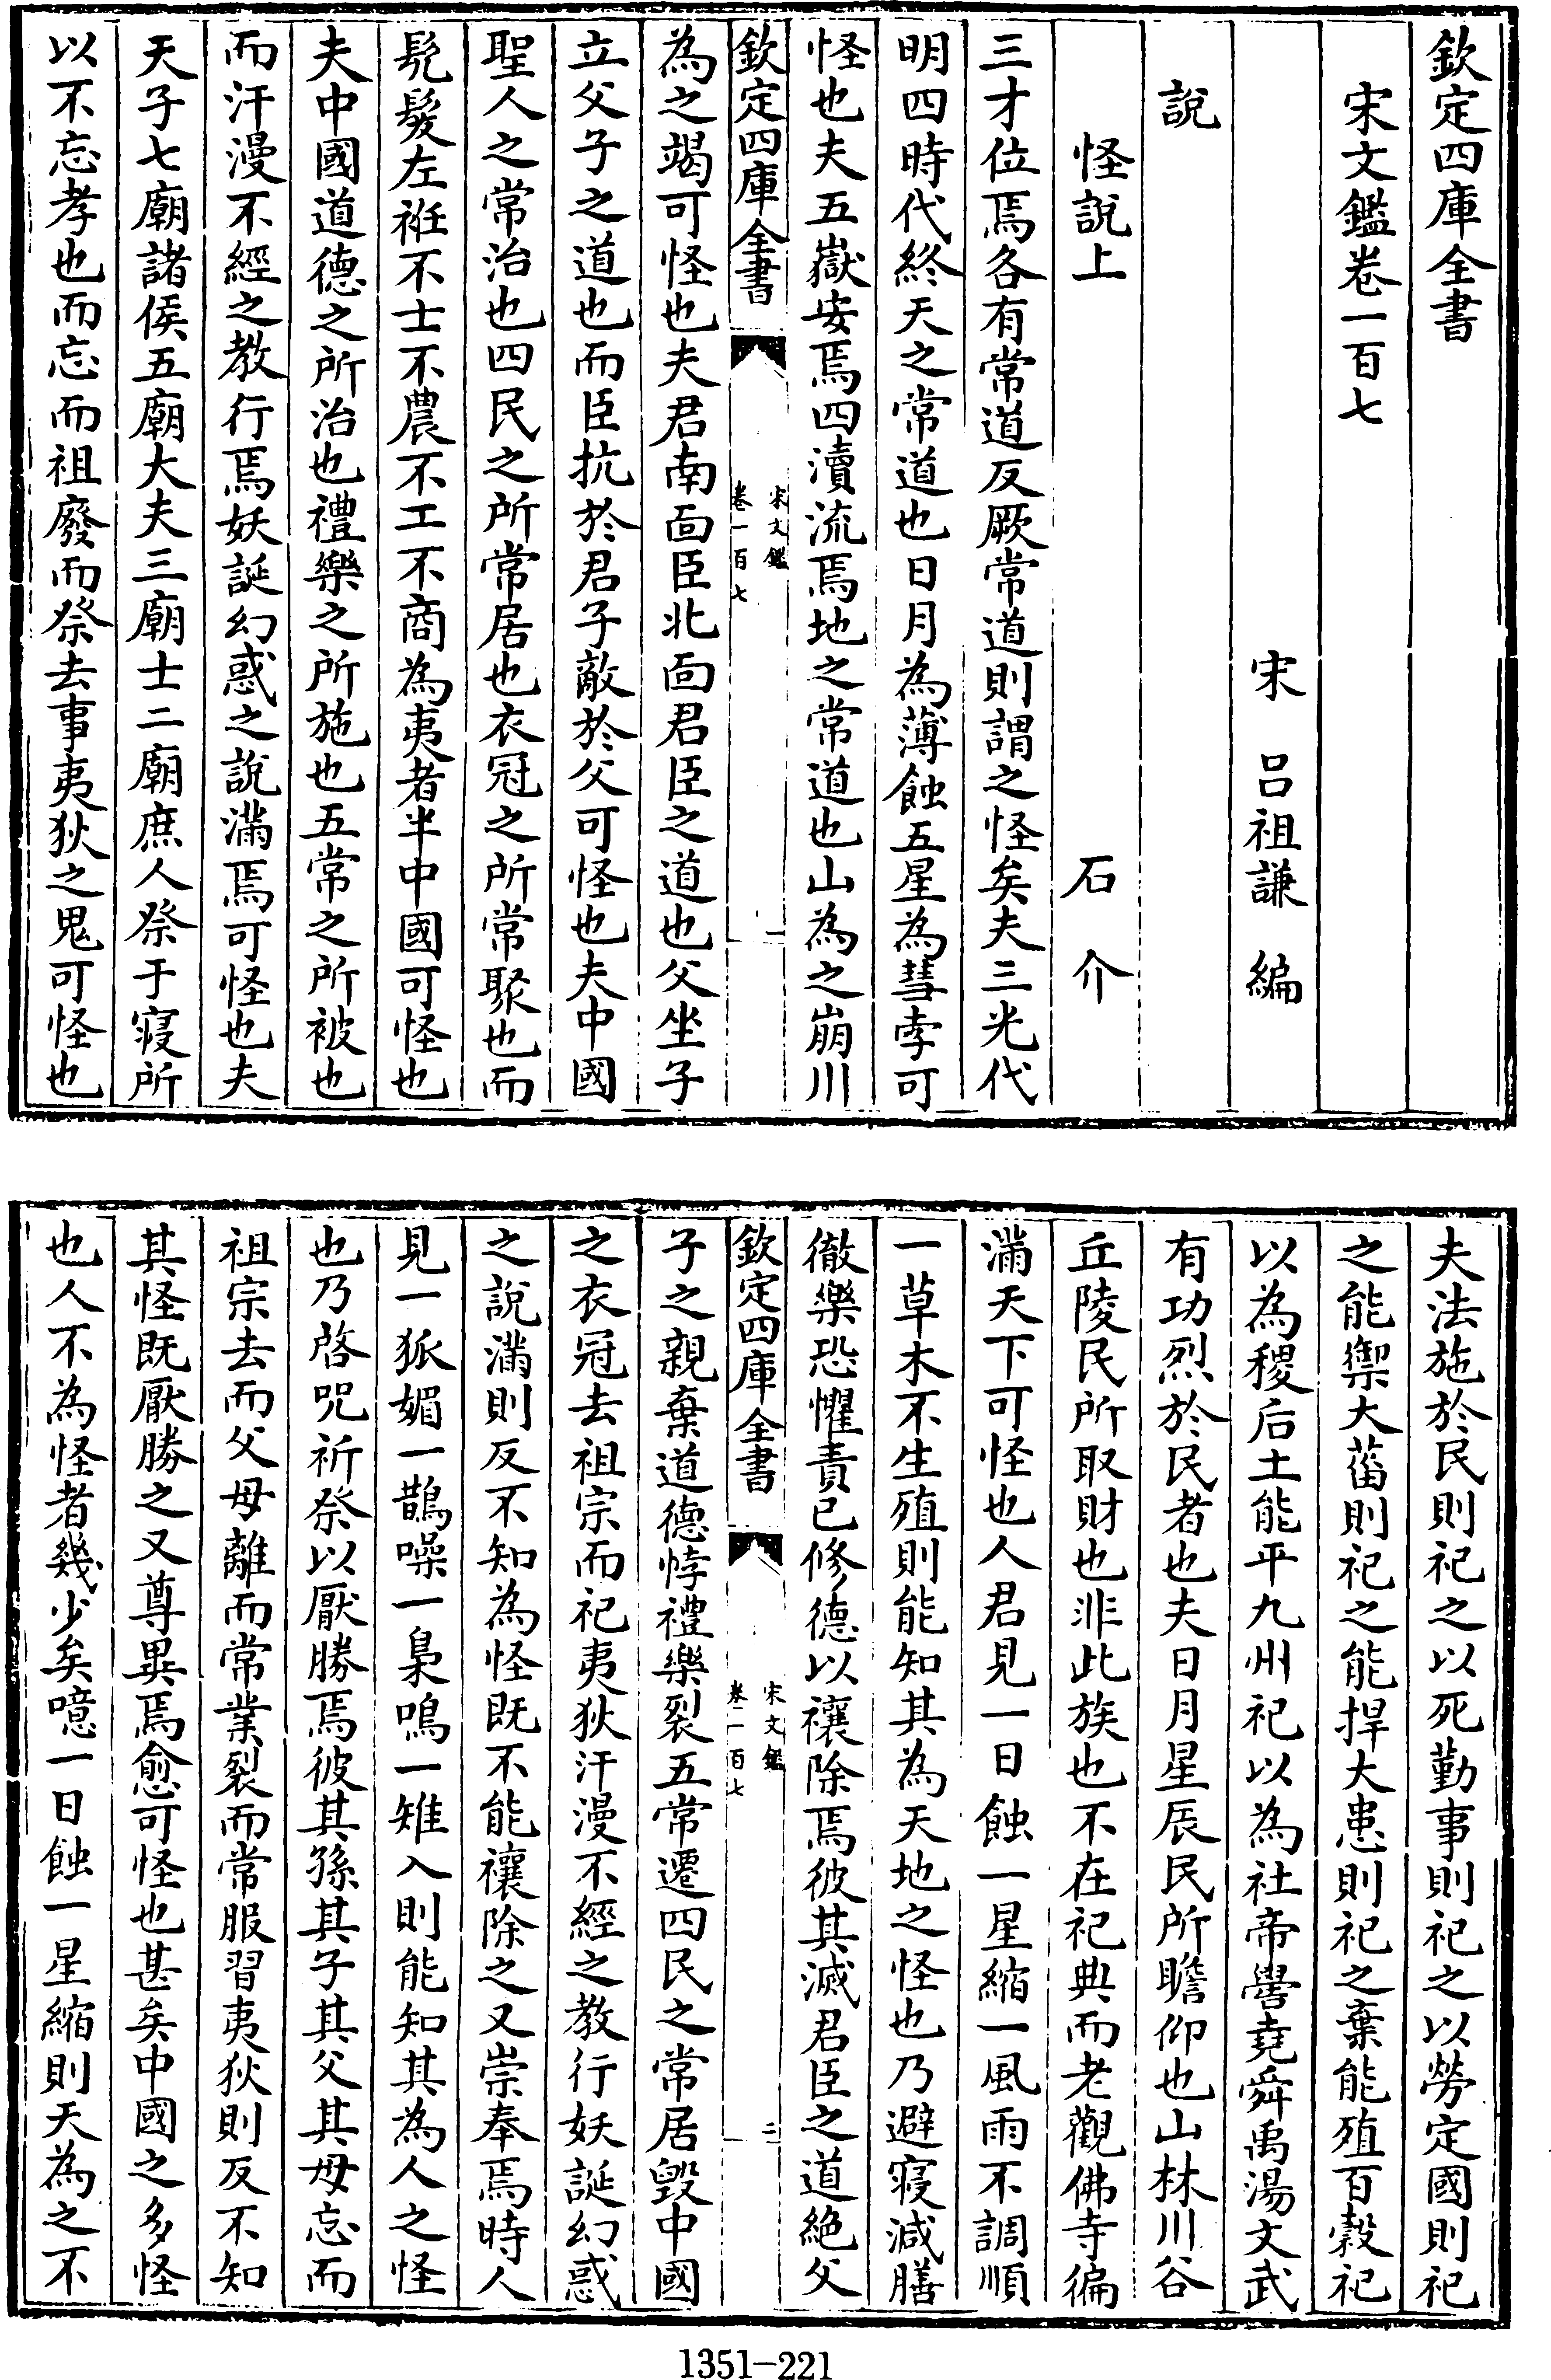 欽定四庫全書
宋文鑑卷一百七
宋　呂祖謙　編
說
怪說上　石　介
三才位焉各有常道反厥常道則謂之怪矣夫三光代
明四時代終天之常道也日月為薄蝕五星為彗孛可
怪也夫五嶽安焉四瀆流焉地之常道也山為之崩川
欽定四庫全書
宋文鑑
卷一百七
一
為之竭可怪也夫君南面臣北面君臣之道也父坐子
立父子之道也而臣抗於君子敵於父可怪也夫中國
聖人之常治也四民之所常居也衣冠之所常聚也而
髡髮左袵不士不農不工不商為夷者半中國可怪也
夫中國道德之所治也禮樂之所施也五常之所被也
而汗漫不經之教行焉妖誕幻惑之說滿焉可怪也夫
天子七廟諸侯五廟大夫三廟士二廟庶人祭于寢所
以不忘孝也而忘而祖廢而祭去事夷狄之鬼可怪也
夫法施於民則祀之以死勤事則祀之以勞定國則祀
之能禦大菑則祀之能捍大患則祀之棄能殖百穀祀
以為稷后土能平九州祀以為社帝嚳堯舜禹湯文武
有功烈於民者也夫日月星辰民所瞻仰也山林川谷
丘陵民所取財也非此族也不在祀典而老觀佛寺徧
滿天下可怪也人君見一日蝕一星縮一風雨不調順
一草木不生殖則能知其為天地之怪也乃避寢減膳
徹樂恐懼責已修德以禳除焉彼其滅君臣之道絕父
欽定四庫全書
宋文鑑
卷一百七
二
子之親棄道德悖禮樂裂五常遷四民之常居毀中國
之衣冠去祖宗而祀夷狄汗漫不經之教行妖誕幻惑
之說滿則反不知為怪既不能禳除之又崇奉焉時人
見一狐媚一鵲噪一梟鳴一雉入則能知其為人之怪
也乃啓呪祈祭以厭勝焉彼其孫其子其父其母忘而
祖宗去而父母離而常業裂而常服習夷狄則反不知
其怪既厭勝之又尊異焉愈可怪也甚矣中國之多怪
也人不為怪者幾少矣噫一日蝕一星縮則天為之不
1351-221